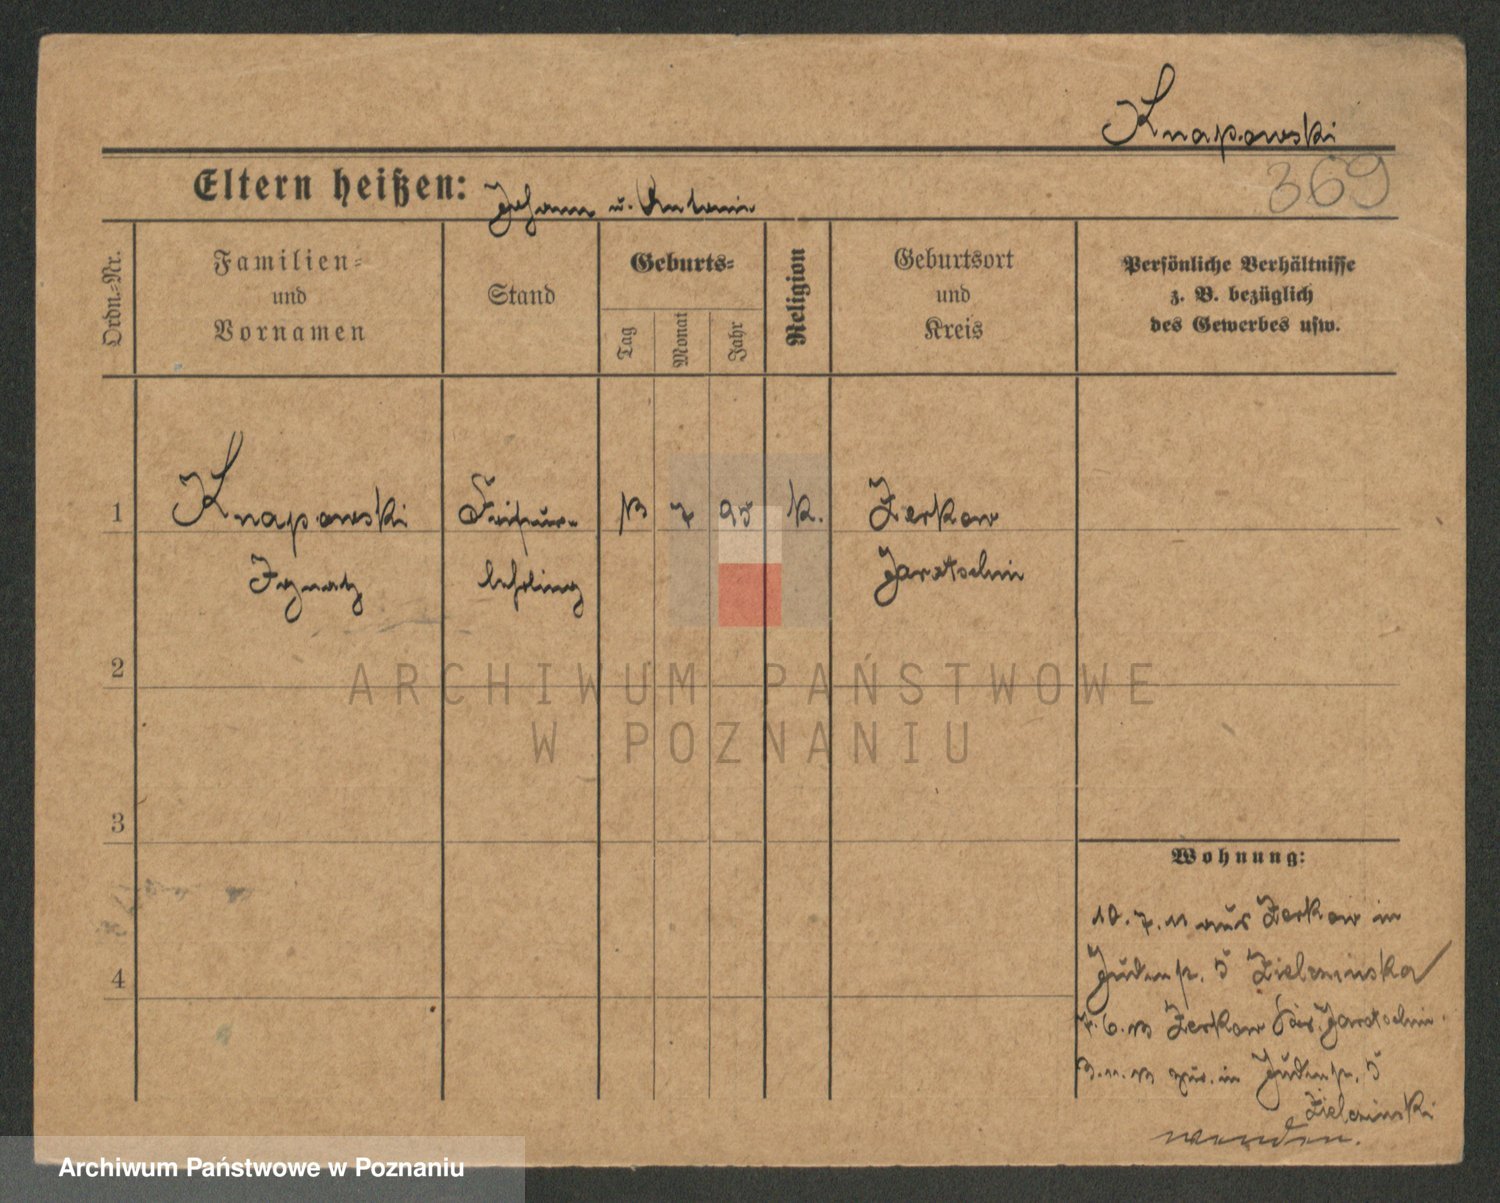 Knapowski
369
Eltern heißen: Johann u. Antonie
Ordn.-Nr.
Familien-
und
Vornamen
Stand
Geburts-
Tag
Monat
Jahr
Religion
Geburtsort
und
Kreis
Persönliche Verhältnisse
z. B. bezüglich
des Gewerbes usw.
1 Knapowski Friseur- 13 7 95 k. Zerkow
Ignatz lehrling Jarotschin
2
3
4
Wohnung:
10.7.11 aus Zerkow in
Judenstr. 5 Zieleminska
7.6.13 Zerkow Jarotschin
3.11.13 zur. in Judenstr. 5
Zieleminski
wenden.
ARCHIWUM PAŃSTWOWE
W POZNANIU
Archiwum Państwowe w Poznaniu